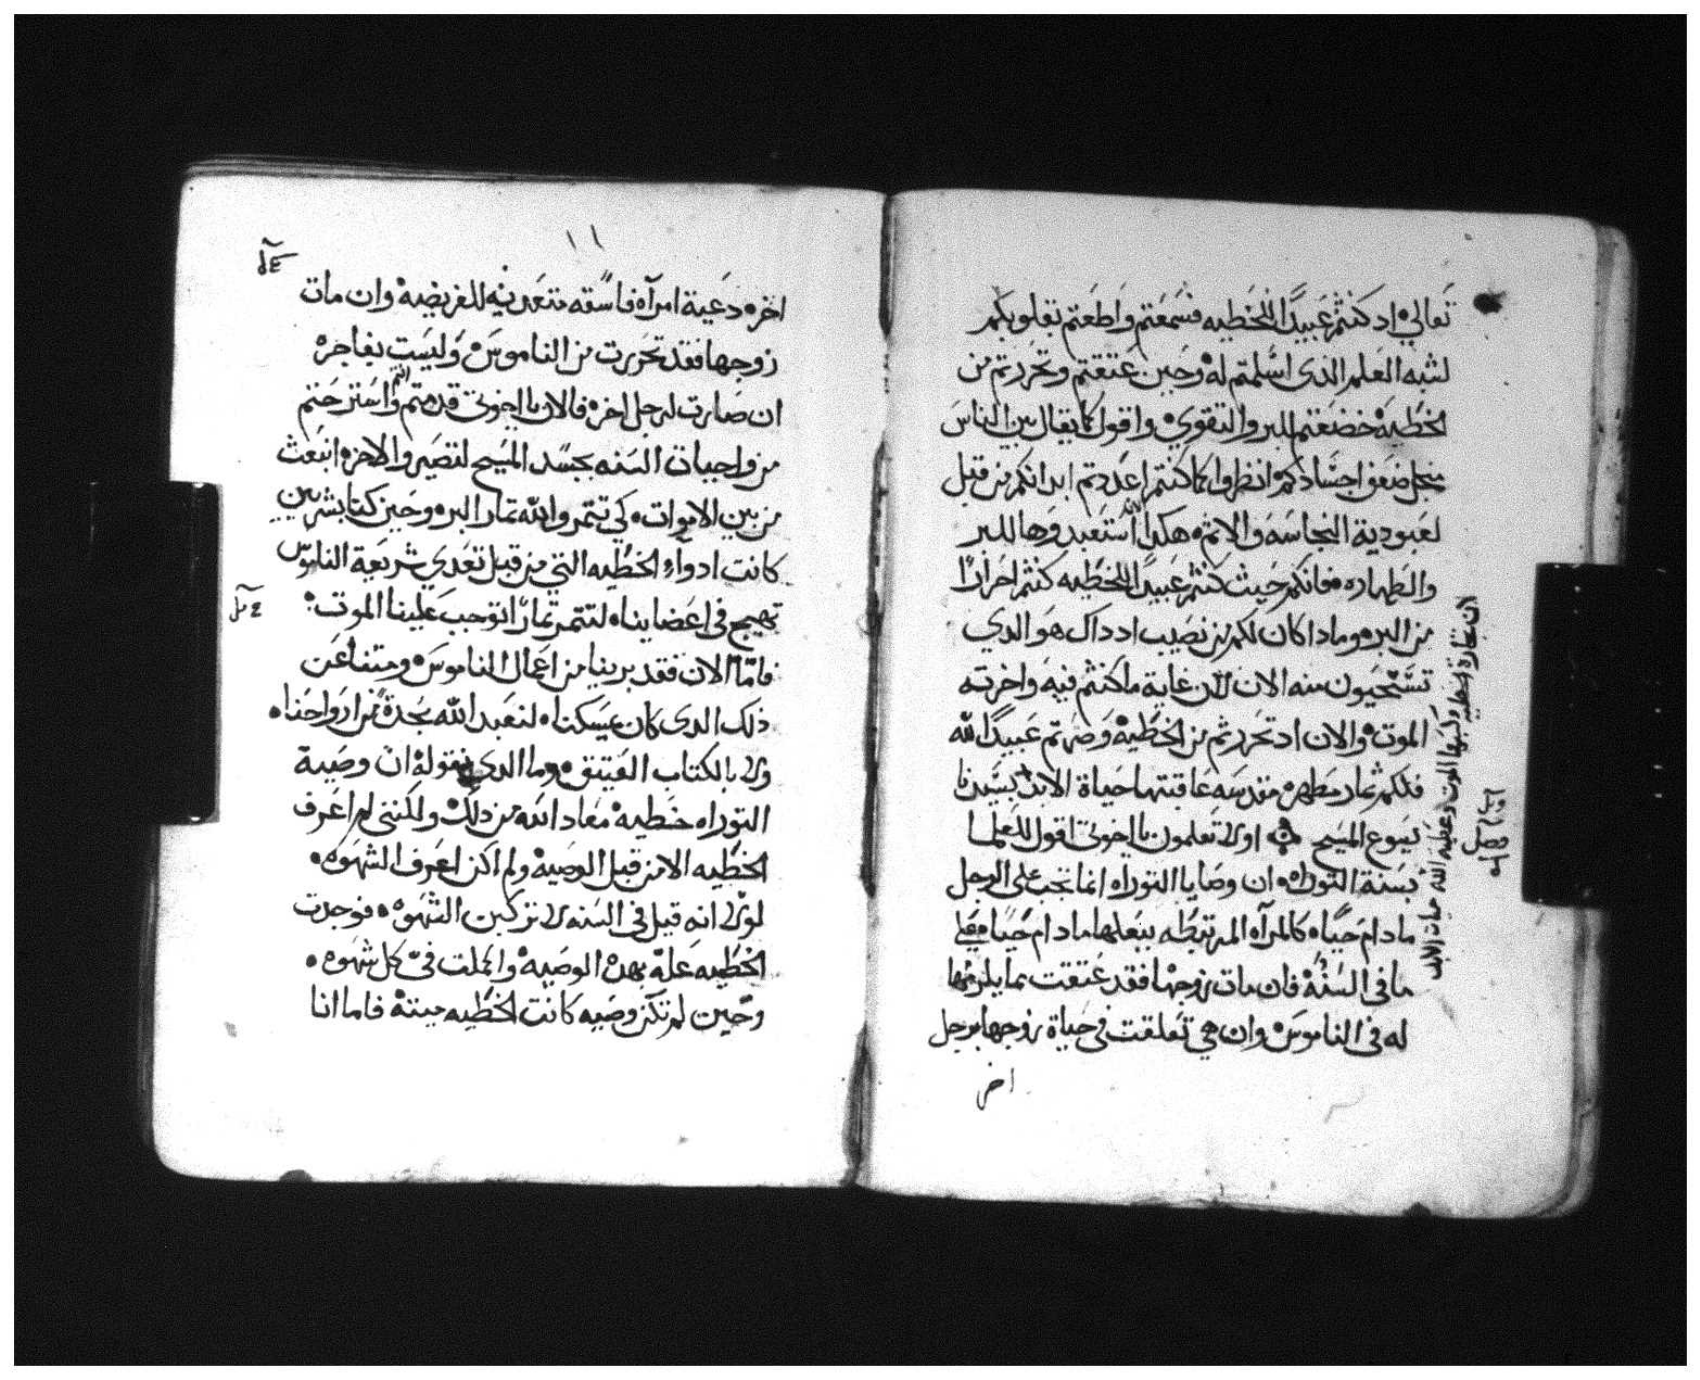 تعالي اد كنتم عبيدًا للخطيه فسمعتم واطعتم بقلوبكم
لشبه العلم الدى اسلمتم له وحين عتقتم وتحررتم من
الخطيه خضعتم للبر والتقوي واقول كما يقال بين الناس
ضعف اجسادكم انظروا كما كنتم اعددتم ابدانكم من قبل
لعبودية النجاسه والاثم هكدا الان استعبدوها للبر
والطهاره فانكم حيث كنتم عبيدًا للخطيه كنتم احرارًا
من البر ومادا كان لكم من نصيب اد داك هو الدي
تستحيون منه الان لان غاية ما كنتم فيه واخرته
الموت والان اد تحررتم من الخطيه وصرتم عبيدًا لله
فلكم ثمار مطهره مقدسه عاقبتها حياة الابد بسيدنا
يسوع المسيح اولا تعلمون يا اخوتي اقول للعلما
بسنة التوراه ان وصايا التوراه انما تجب على الرجل
مادام حيًا كالمراه المرتبطه ببعلها مادام حيًا
ما في السنة فان مات زوجها فقد عتقت مما يلزمها
له في الناموس وان هي تعلقت في حياة زوجها برجل
اخر
ان تجارة الخطيه وكسبها الموت وعطية الله حيات الابد
فصل
١١
اخره دعية امراه فاسقه متعديه للفريضه وان مات
زوجها فقد تحررت من الناموس وليست بفاجره
ان صارت لرجل اخر فالان يا اخوتي قدمتم انتم واسترحتم
من واجبات السنه بجسد المسيح لتصيروا لاخر انبعث
من بين الاموات كي تتمروا لله تمار البر وحين كنا بشريين
كانت ادواء الخطيه التي من قبل تعدي شريعة الناموس
تهيج في اعضاينا لتتمر تمارًا توجب علينا الموت
فامّا الان فقد برينا من اعمال الناموس ومتنا عن
ذلك الدى كان يمسكنا لنعبد الله بجدة من ارواحنا
ولا بالكتاب العتيق وما الدى نقوله ان وصية
التوراه خطيه معاد الله من ذلك ولكنني لم اعرف
الخطيه الا من قبل الوصيه ولم اكن اعرف الشهوه
لولا انه قيل في السنه لا تركبن الشهوه فوجدت
الخطيه علة بهده الوصيه واكملت فيّ كل شهوه
وحين لم تكن وصيه كانت الخطيه ميتة فاما انا